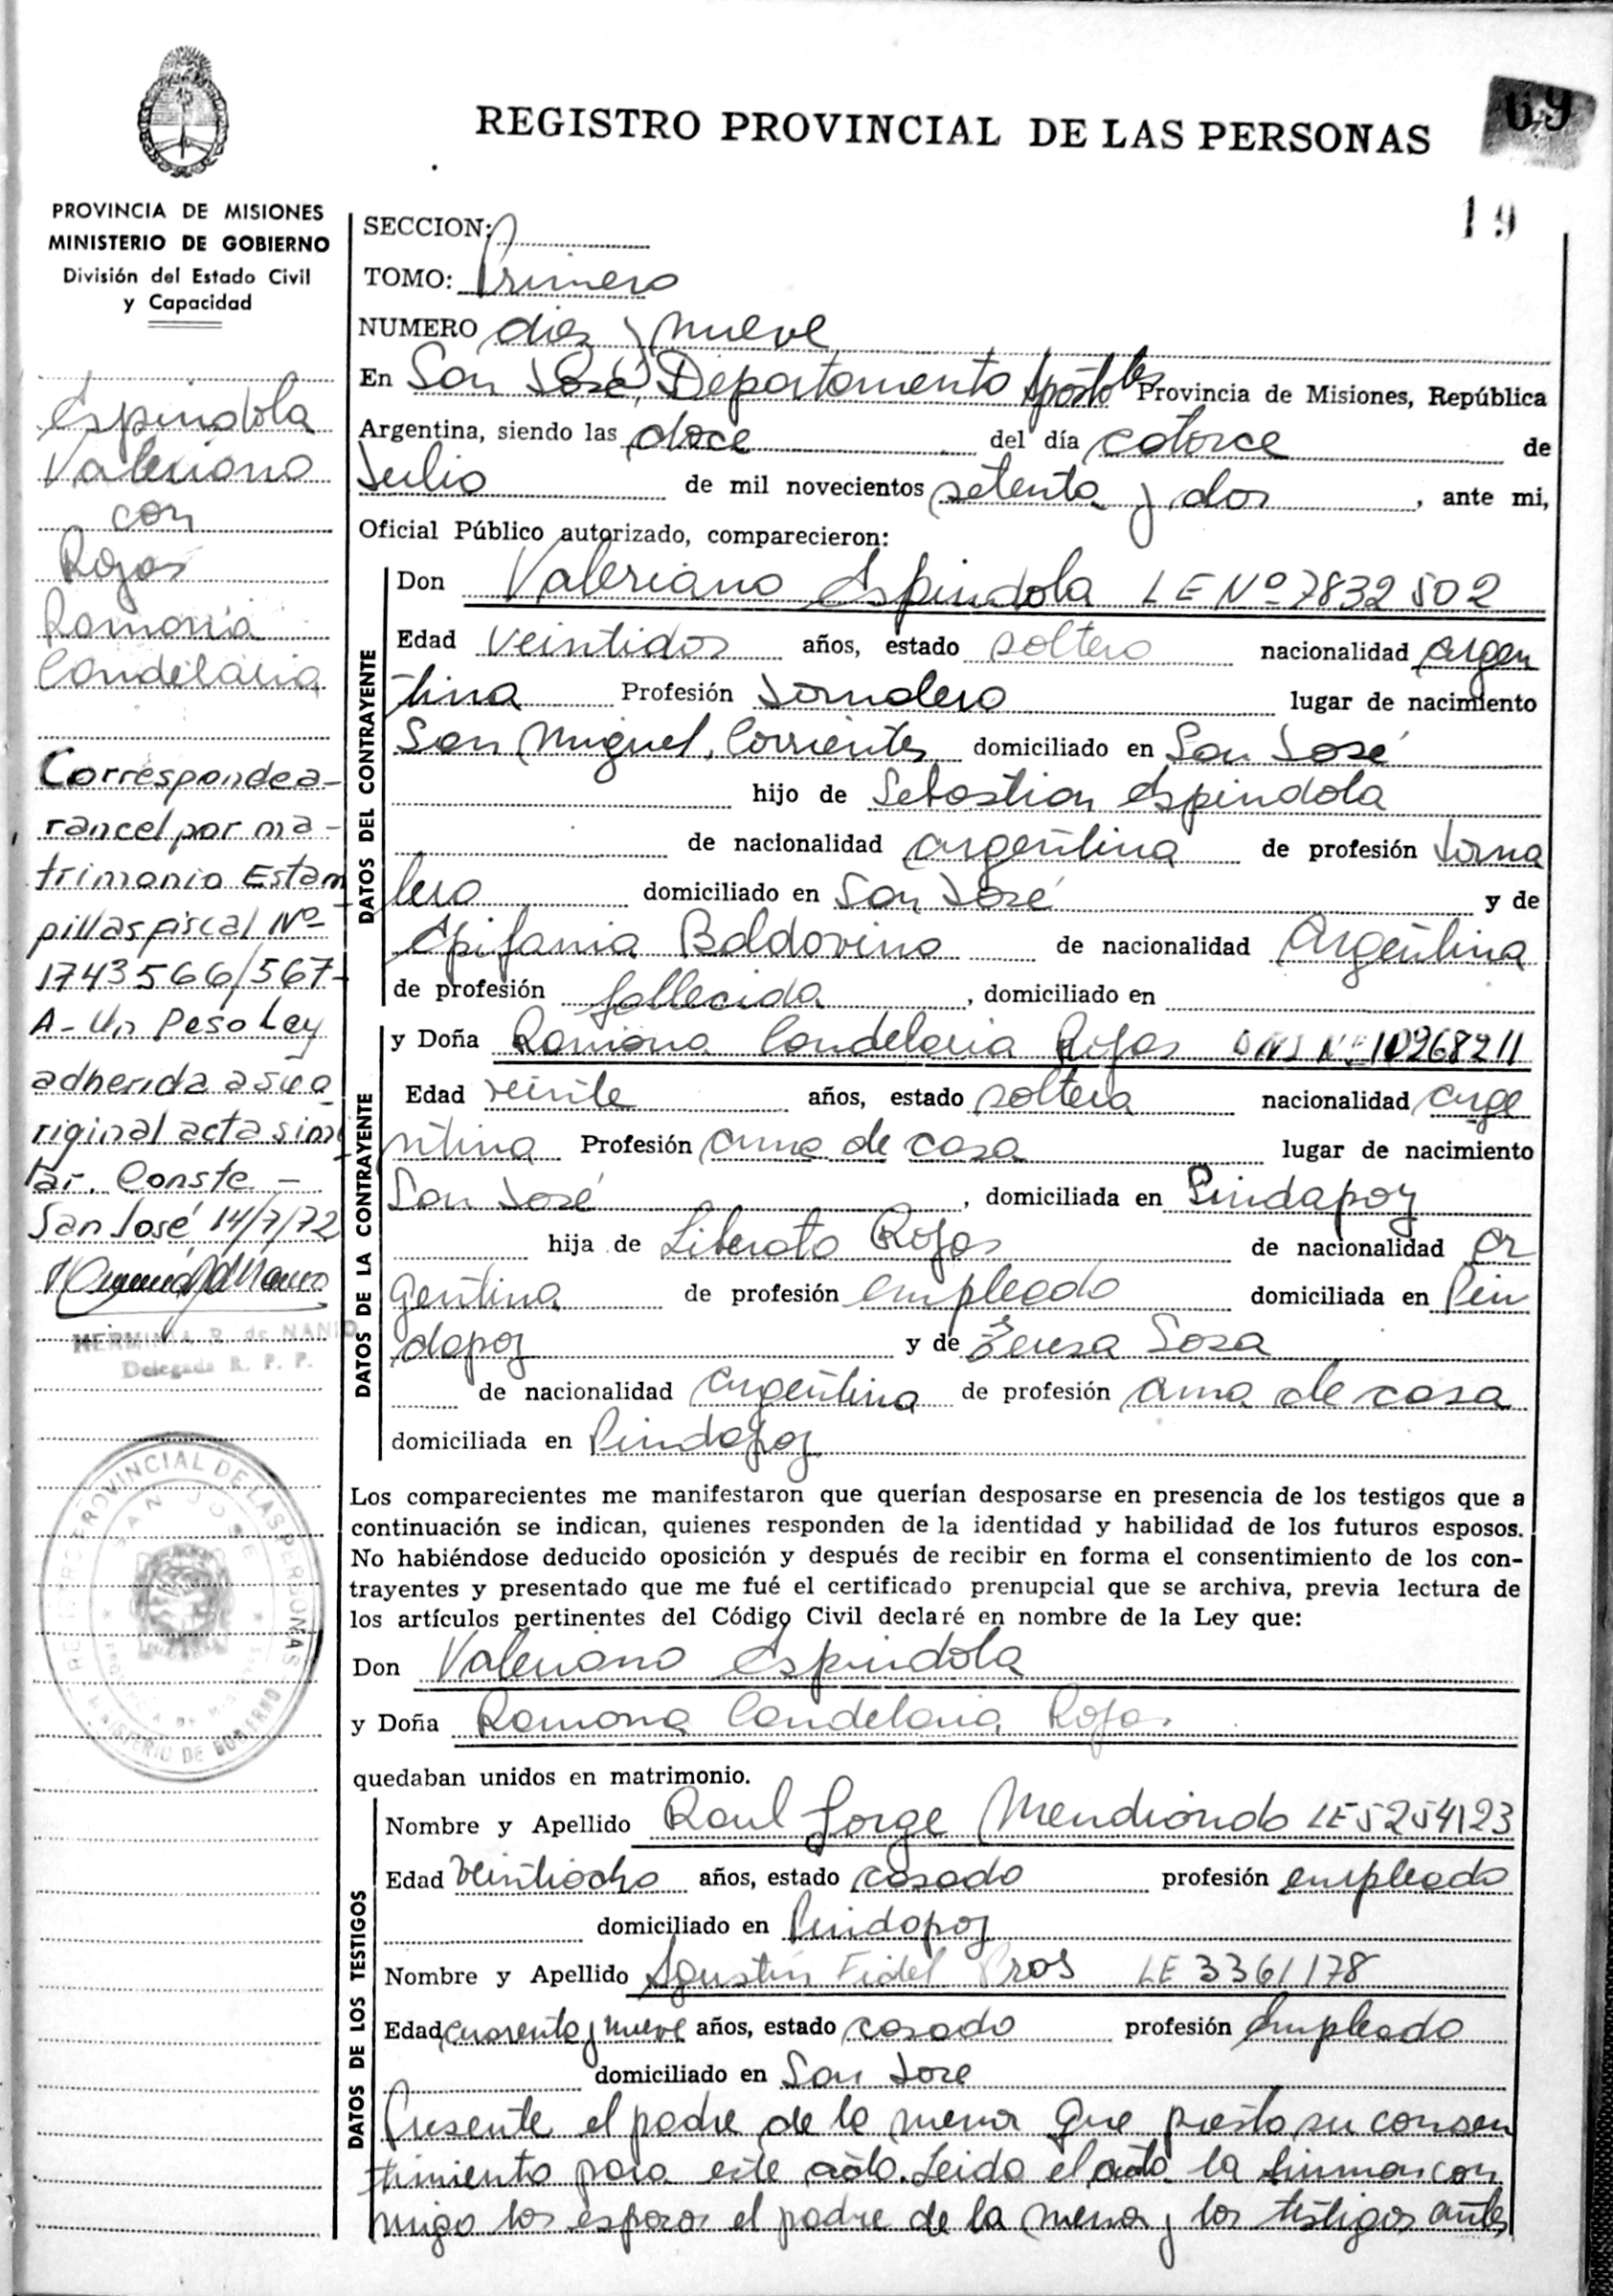 REGISTRO PROVINCIAL DE LAS PERSONAS
69
19
PROVINCIA DE MISIONES
MINISTERIO DE GOBIERNO
División del Estado Civil
y Capacidad
Espindola
Valeriano
con
Rojas
Ramona
Candelaria
Corresponde a-
rancel por ma-
trimonio Estam
pillas fiscal Nº
1743566/567-
A- Un Peso Ley
adherida a su o
riginal acta simi
lar. Conste -
San José 14/7/72
HERMINIA R. de NANIO
Delegada R. P. P.
REGISTRO PROVINCIAL DE LAS PERSONAS
SAN JOSE
PROVINCIA DE MISIONES
MINISTERIO DE GOBIERNO
SECCION:
TOMO: Primero
NUMERO diez y nueve
En San José, Departamento Apóstoles Provincia de Misiones, República
Argentina, siendo las doce del día catorce de
Julio de mil novecientos setenta y dos, ante mi,
Oficial Público autorizado, comparecieron:
DATOS DEL CONTRAYENTE
Don Valeriano Espindola LE Nº 7832502
Edad veintidos años, estado soltero nacionalidad argen
tina Profesión Jornalero lugar de nacimiento
San Miguel, Corrientes domiciliado en San José
hijo de Sebastian Espindola
de nacionalidad argentina de profesión Jorna
lero domiciliado en San José y de
Epifania Baldovino de nacionalidad Argentina
de profesión fallecida, domiciliado en
DATOS DE LA CONTRAYENTE
y Doña Ramona Candelaria Rojas DNI Nº 10268211
Edad veinte años, estado soltera nacionalidad arge
ntina Profesión ama de casa lugar de nacimiento
San José, domiciliada en Pindapoy
hija de Liberato Rojas de nacionalidad ar
gentina de profesión empleado domiciliada en Pin
dapoy y de Teresa Sosa
de nacionalidad argentina de profesión ama de casa
domiciliada en Pindapoy
Los comparecientes me manifestaron que querían desposarse en presencia de los testigos que a
continuación se indican, quienes responden de la identidad y habilidad de los futuros esposos.
No habiéndose deducido oposición y después de recibir en forma el consentimiento de los con-
trayentes y presentado que me fué el certificado prenupcial que se archiva, previa lectura de
los artículos pertinentes del Código Civil declaré en nombre de la Ley que:
Don Valeriano Espindola
y Doña Ramona Candelaria Rojas
quedaban unidos en matrimonio.
DATOS DE LOS TESTIGOS
Nombre y Apellido Raul Jorge Mendiondo LE 5254123
Edad veintiocho años, estado casado profesión empleado
domiciliado en Pindapoy
Nombre y Apellido Agustin Fidel Pros LE 3361178
Edad cuarenta y nueve años, estado casado profesión Empleado
domiciliado en San Jose
Presente el padre de la menor que presta su consen
timiento para este acto. Leida el acta la firman con
migo los esposos el padre de la menor y los testigos antes